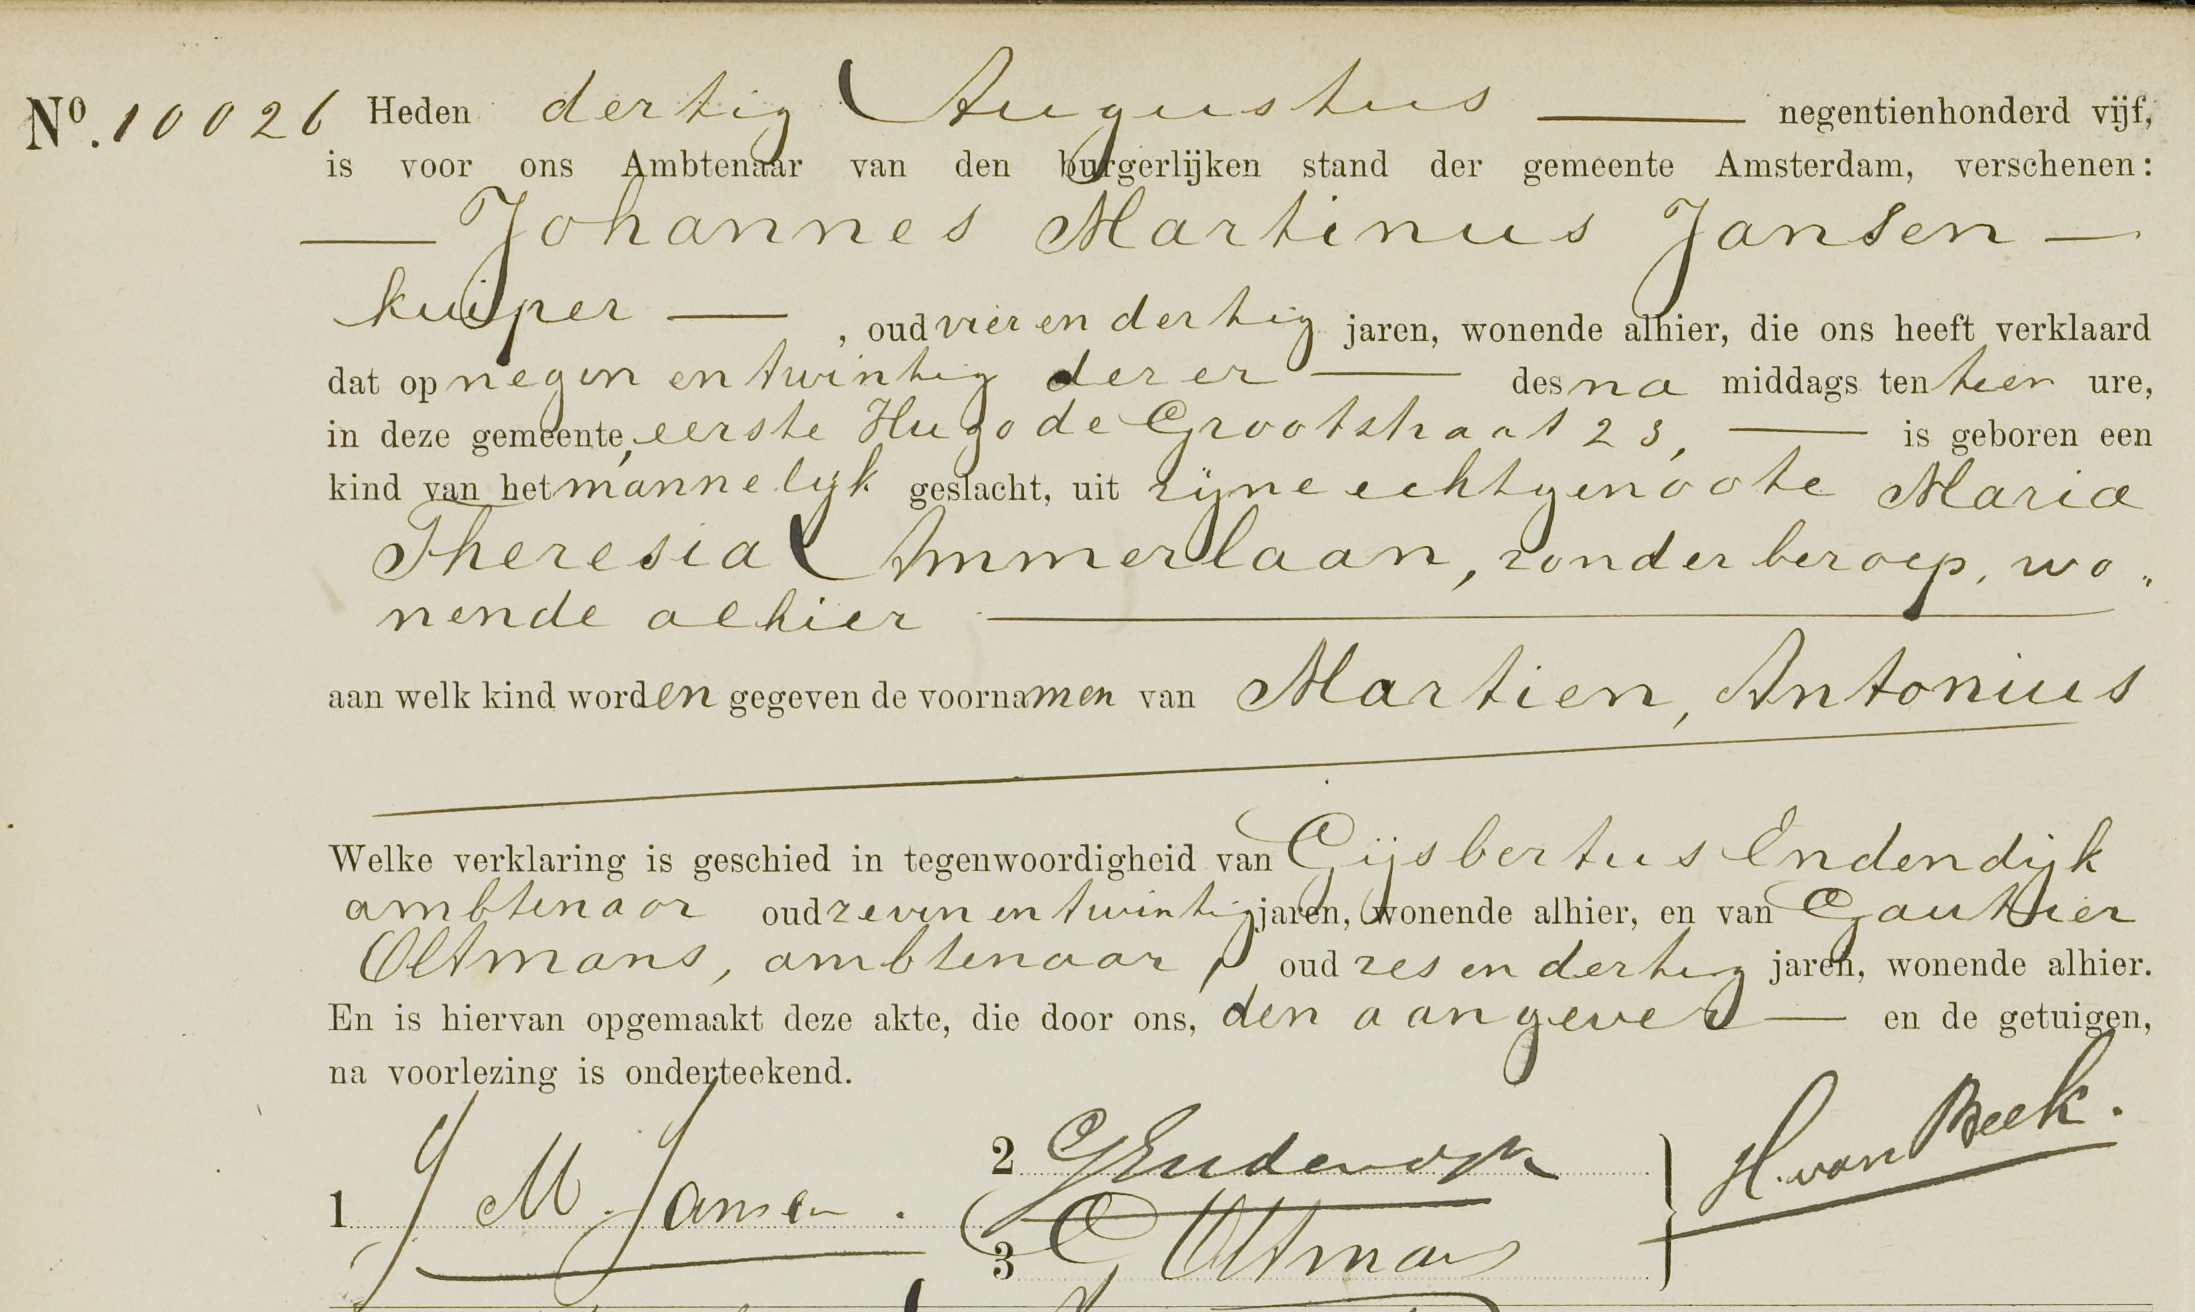 No. 10026 Heden dertig Augustus negentienhonderd vijf,
is voor ons Ambtenaar van den burgerlijken stand der gemeente Amsterdam, verschenen:
Johannes Martinus Jansen
kuiper, oud vier en dertig jaren, wonende alhier, die ons heeft verklaard
dat op negen en twintig dezer des na middags ten tien ure,
in deze gemeente, eerste Hugo de Grootstraat 23, is geboren een
kind van het mannelijk geslacht, uit zijne echtgenoote Maria
Theresia Ammerlaan, zonder beroep, wo„
nende alhier
aan welk kind worden gegeven de voornamen van Martien, Antonius
Welke verklaring is geschied in tegenwoordigheid van Gijsbertus Endendijk
ambtenaar oud zeven en twintig jaren, wonende alhier, en van Gauthier
Oltmans, ambtenaar, oud zes en dertig jaren, wonende alhier.
En is hiervan opgemaakt deze akte, die door ons, den aangever en de getuigen,
na voorlezing is onderteekend.
1 J M Jansen.
2 G Endendijk
3 G Oltmans
H. van Beek.